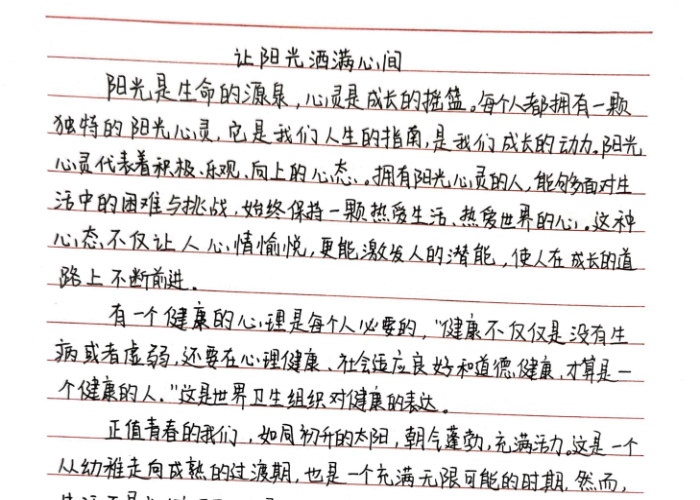 让阳光洒满心间
阳光是生命的源泉，心灵是成长的摇篮。每个人都拥有一颗
独特的阳光心灵，它是我们人生的指南，是我们成长的动力。阳光
心灵代表着积极、乐观、向上的心态。拥有阳光心灵的人，能够面对生
活中的困难与挑战，始终保持一颗热爱生活、热爱世界的心。这种
心态不仅让人心情愉悦，更能激发人的潜能，使人在成长的道
路上不断前进。
有一个健康的心理是每个人必要的，"健康不仅仅是没有生
病或者虚弱，还要在心理健康、社会适应良好和道德健康，才算是一
个健康的人。"这是世界卫生组织对健康的表达。
正值青春的我们，如同初升的太阳，朝气蓬勃，充满活力。这是一个
从幼稚走向成熟的过渡期，也是一个充满无限可能的时期，然而，